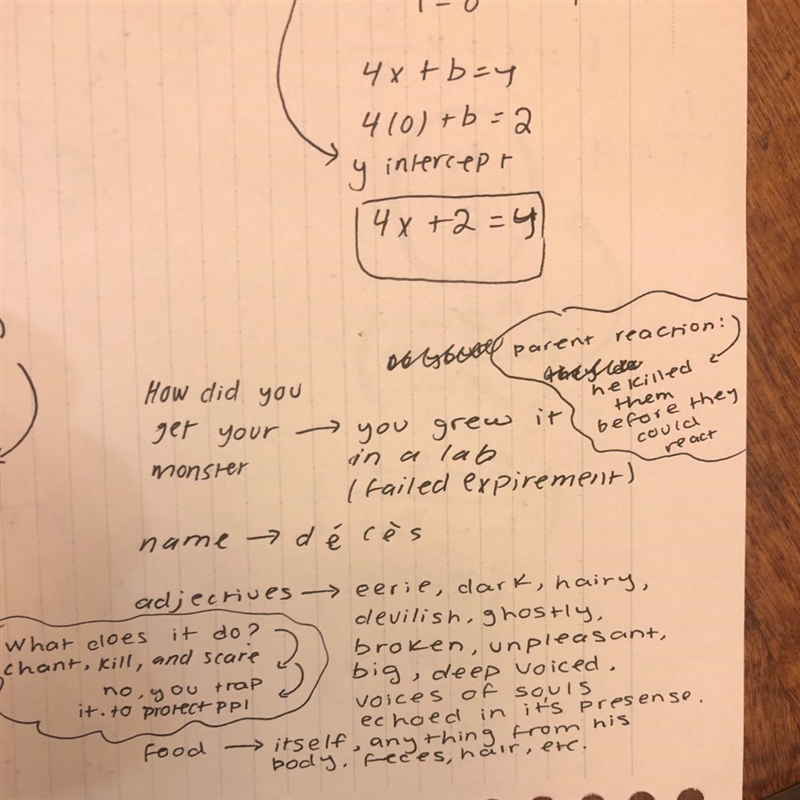 4x + b = y
4(0) + b = 2
y intercept
4x + 2 = y
parent reaction:
he killed
them
before they
could
react
How did you
get your → you grew it
monster in a lab
(failed expirement)
name → décès
adjectives → eerie, dark, hairy,
devilish, ghostly,
broken, unpleasant,
big, deep voiced.
voices of souls
echoed in it's presense.
What does it do?
chant, kill, and scare
no, you trap
it. to protect ppl
food → itself, anything from his
body. feces, hair, etc.